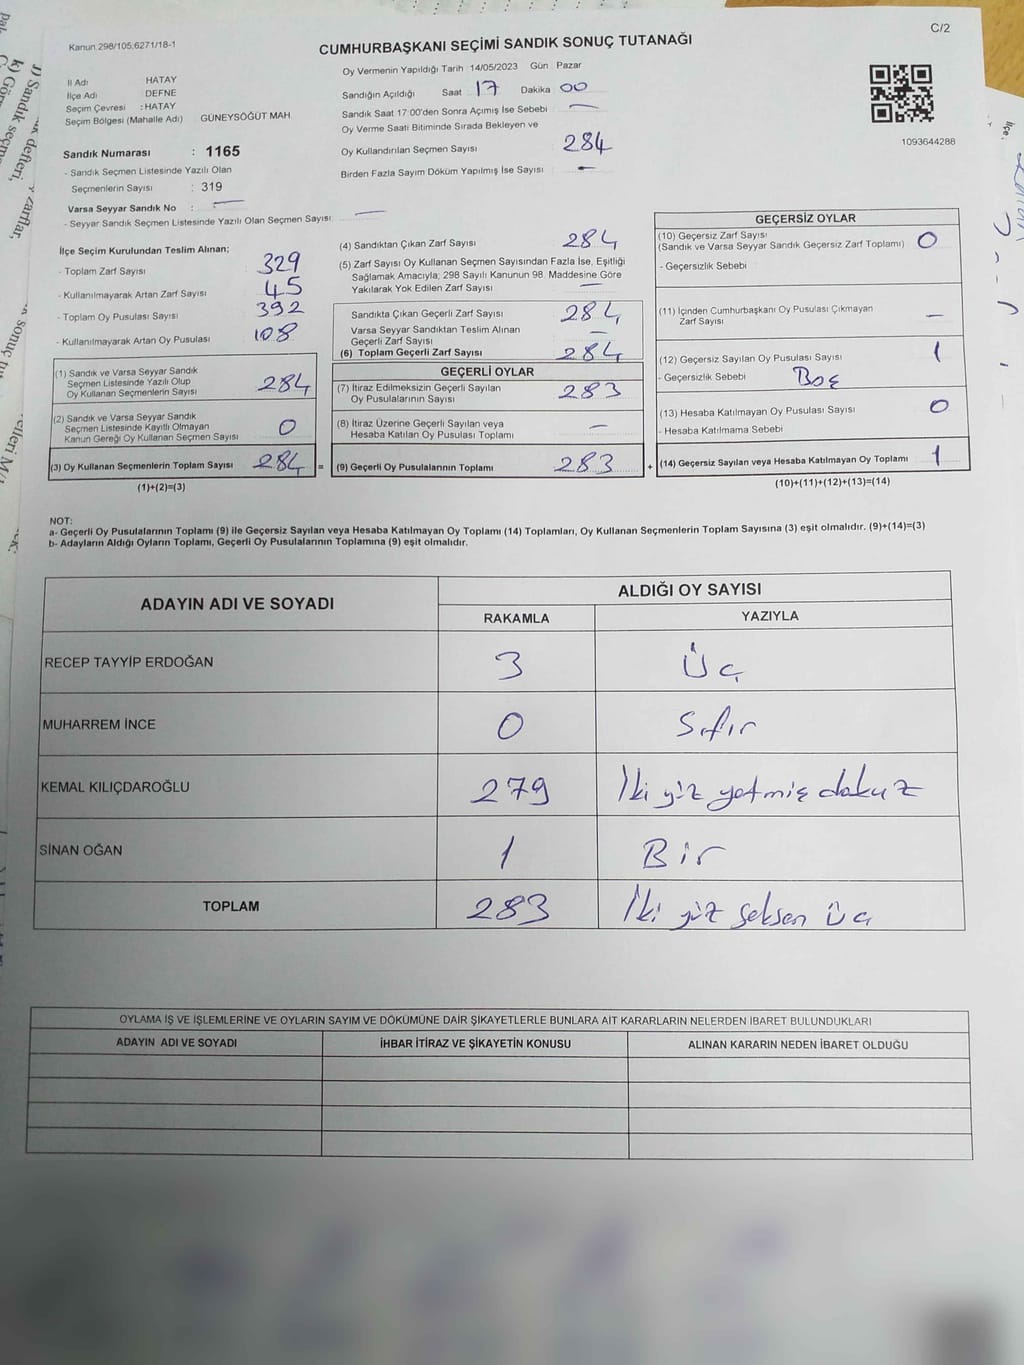 C/2
Kanun 298/105.6271/18-1
CUMHURBAŞKANI SEÇİMİ SANDIK SONUÇ TUTANAĞI
İl Adı HATAY
İlçe Adı DEFNE
Seçim Çevresi : HATAY
Seçim Bölgesi (Mahalle Adı) GÜNEYSÖĞÜT MAH.
Sandık Numarası : 1165
- Sandık Seçmen Listesinde Yazılı Olan
Seçmenlerin Sayısı : 319
Varsa Seyyar Sandık No : —
- Seyyar Sandık Seçmen Listesinde Yazılı Olan Seçmen Sayısı —
Oy Vermenin Yapıldığı Tarih 14/05/2023 Gün Pazar
Sandığın Açıldığı Saat 17 Dakika 00
Sandık Saat 17:00'den Sonra Açımış İse Sebebi —
Oy Verme Saati Bitiminde Sırada Bekleyen ve
Oy Kullandırılan Seçmen Sayısı 284
Birden Fazla Sayım Döküm Yapılmış İse Sayısı —
1093644288
İlçe Seçim Kurulundan Teslim Alınan;
- Toplam Zarf Sayısı 329
- Kullanılmayarak Artan Zarf Sayısı 45
- Toplam Oy Pusulası Sayısı 392
- Kullanılmayarak Artan Oy Pusulası 108
(1) Sandık ve Varsa Seyyar Sandık
Seçmen Listesinde Yazılı Olup
Oy Kullanan Seçmenlerin Sayısı 284
(2) Sandık ve Varsa Seyyar Sandık
Seçmen Listesinde Kayıtlı Olmayan
Kanun Gereği Oy Kullanan Seçmen Sayısı 0
(3) Oy Kullanan Seçmenlerin Toplam Sayısı 284 =
(1)+(2)=(3)
(4) Sandıktan Çıkan Zarf Sayısı 284
(5) Zarf Sayısı Oy Kullanan Seçmen Sayısından Fazla İse, Eşitliği
Sağlamak Amacıyla; 298 Sayılı Kanunun 98. Maddesine Göre
Yakılarak Yok Edilen Zarf Sayısı —
Sandıkta Çıkan Geçerli Zarf Sayısı 284
Varsa Seyyar Sandıktan Teslim Alınan
Geçerli Zarf Sayısı —
(6) Toplam Geçerli Zarf Sayısı 284
GEÇERLİ OYLAR
(7) İtiraz Edilmeksizin Geçerli Sayılan
Oy Pusulalarının Sayısı 283
(8) İtiraz Üzerine Geçerli Sayılan veya
Hesaba Katılan Oy Pusulası Toplamı —
(9) Geçerli Oy Pusulalarının Toplamı 283 +
GEÇERSİZ OYLAR
(10) Geçersiz Zarf Sayısı
(Sandık ve Varsa Seyyar Sandık Geçersiz Zarf Toplamı) 0
- Geçersizlik Sebebi
(11) İçinden Cumhurbaşkanı Oy Pusulası Çıkmayan
Zarf Sayısı —
(12) Geçersiz Sayılan Oy Pusulası Sayısı 1
- Geçersizlik Sebebi Boş
(13) Hesaba Katılmayan Oy Pusulası Sayısı 0
- Hesaba Katılmama Sebebi
(14) Geçersiz Sayılan veya Hesaba Katılmayan Oy Toplamı 1
(10)+(11)+(12)+(13)=(14)
NOT:
a- Geçerli Oy Pusulalarının Toplamı (9) ile Geçersiz Sayılan veya Hesaba Katılmayan Oy Toplamı (14) Toplamları, Oy Kullanan Seçmenlerin Toplam Sayısına (3) eşit olmalıdır. (9)+(14)=(3)
b- Adayların Aldığı Oyların Toplamı, Geçerli Oy Pusulalarının Toplamına (9) eşit olmalıdır.
ADAYIN ADI VE SOYADI ALDIĞI OY SAYISI
RAKAMLA YAZIYLA
RECEP TAYYİP ERDOĞAN 3 Üç
MUHARREM İNCE 0 Sıfır
KEMAL KILIÇDAROĞLU 279 İki yüz yetmiş dokuz
SİNAN OĞAN 1 Bir
TOPLAM 283 İki yüz seksen üç
OYLAMA İŞ VE İŞLEMLERİNE VE OYLARIN SAYIM VE DÖKÜMÜNE DAİR ŞİKAYETLERLE BUNLARA AİT KARARLARIN NELERDEN İBARET BULUNDUKLARI
ADAYIN ADI VE SOYADI İHBAR İTİRAZ VE ŞİKAYETİN KONUSU ALINAN KARARIN NEDEN İBARET OLDUĞU